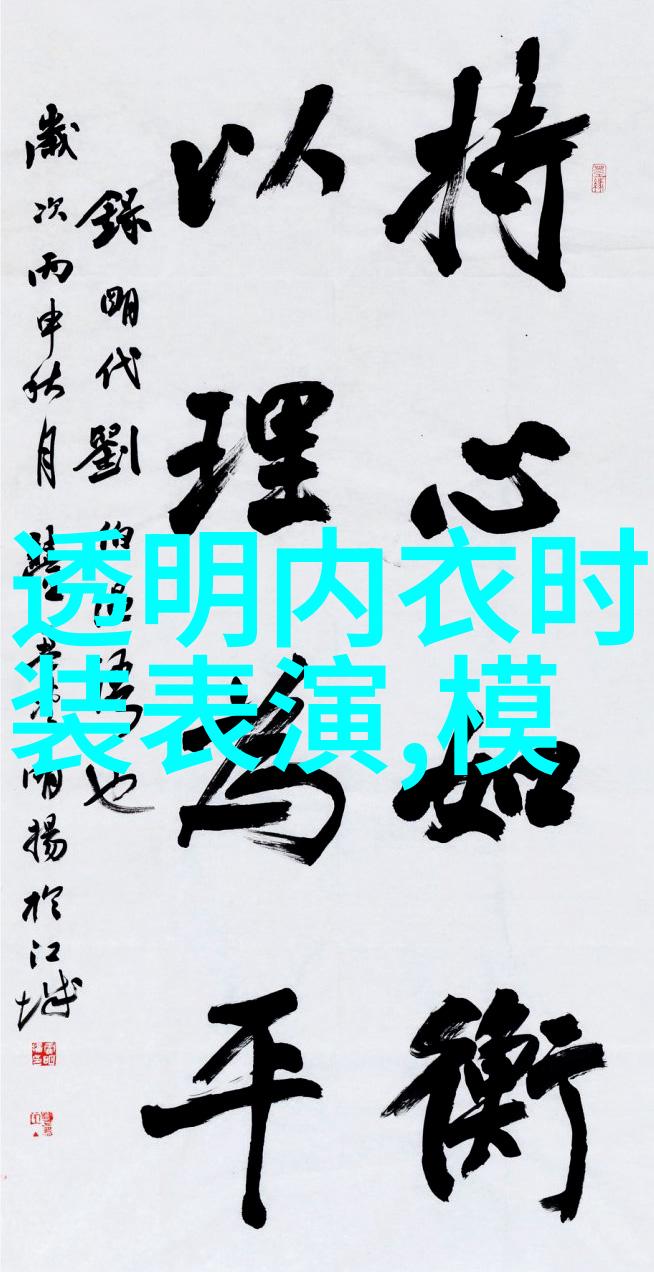 持心如衡
以理为平
錄明代劉伯温語也
歲次丙申秋月
明揚於江城
透明内衣时
装表演,模